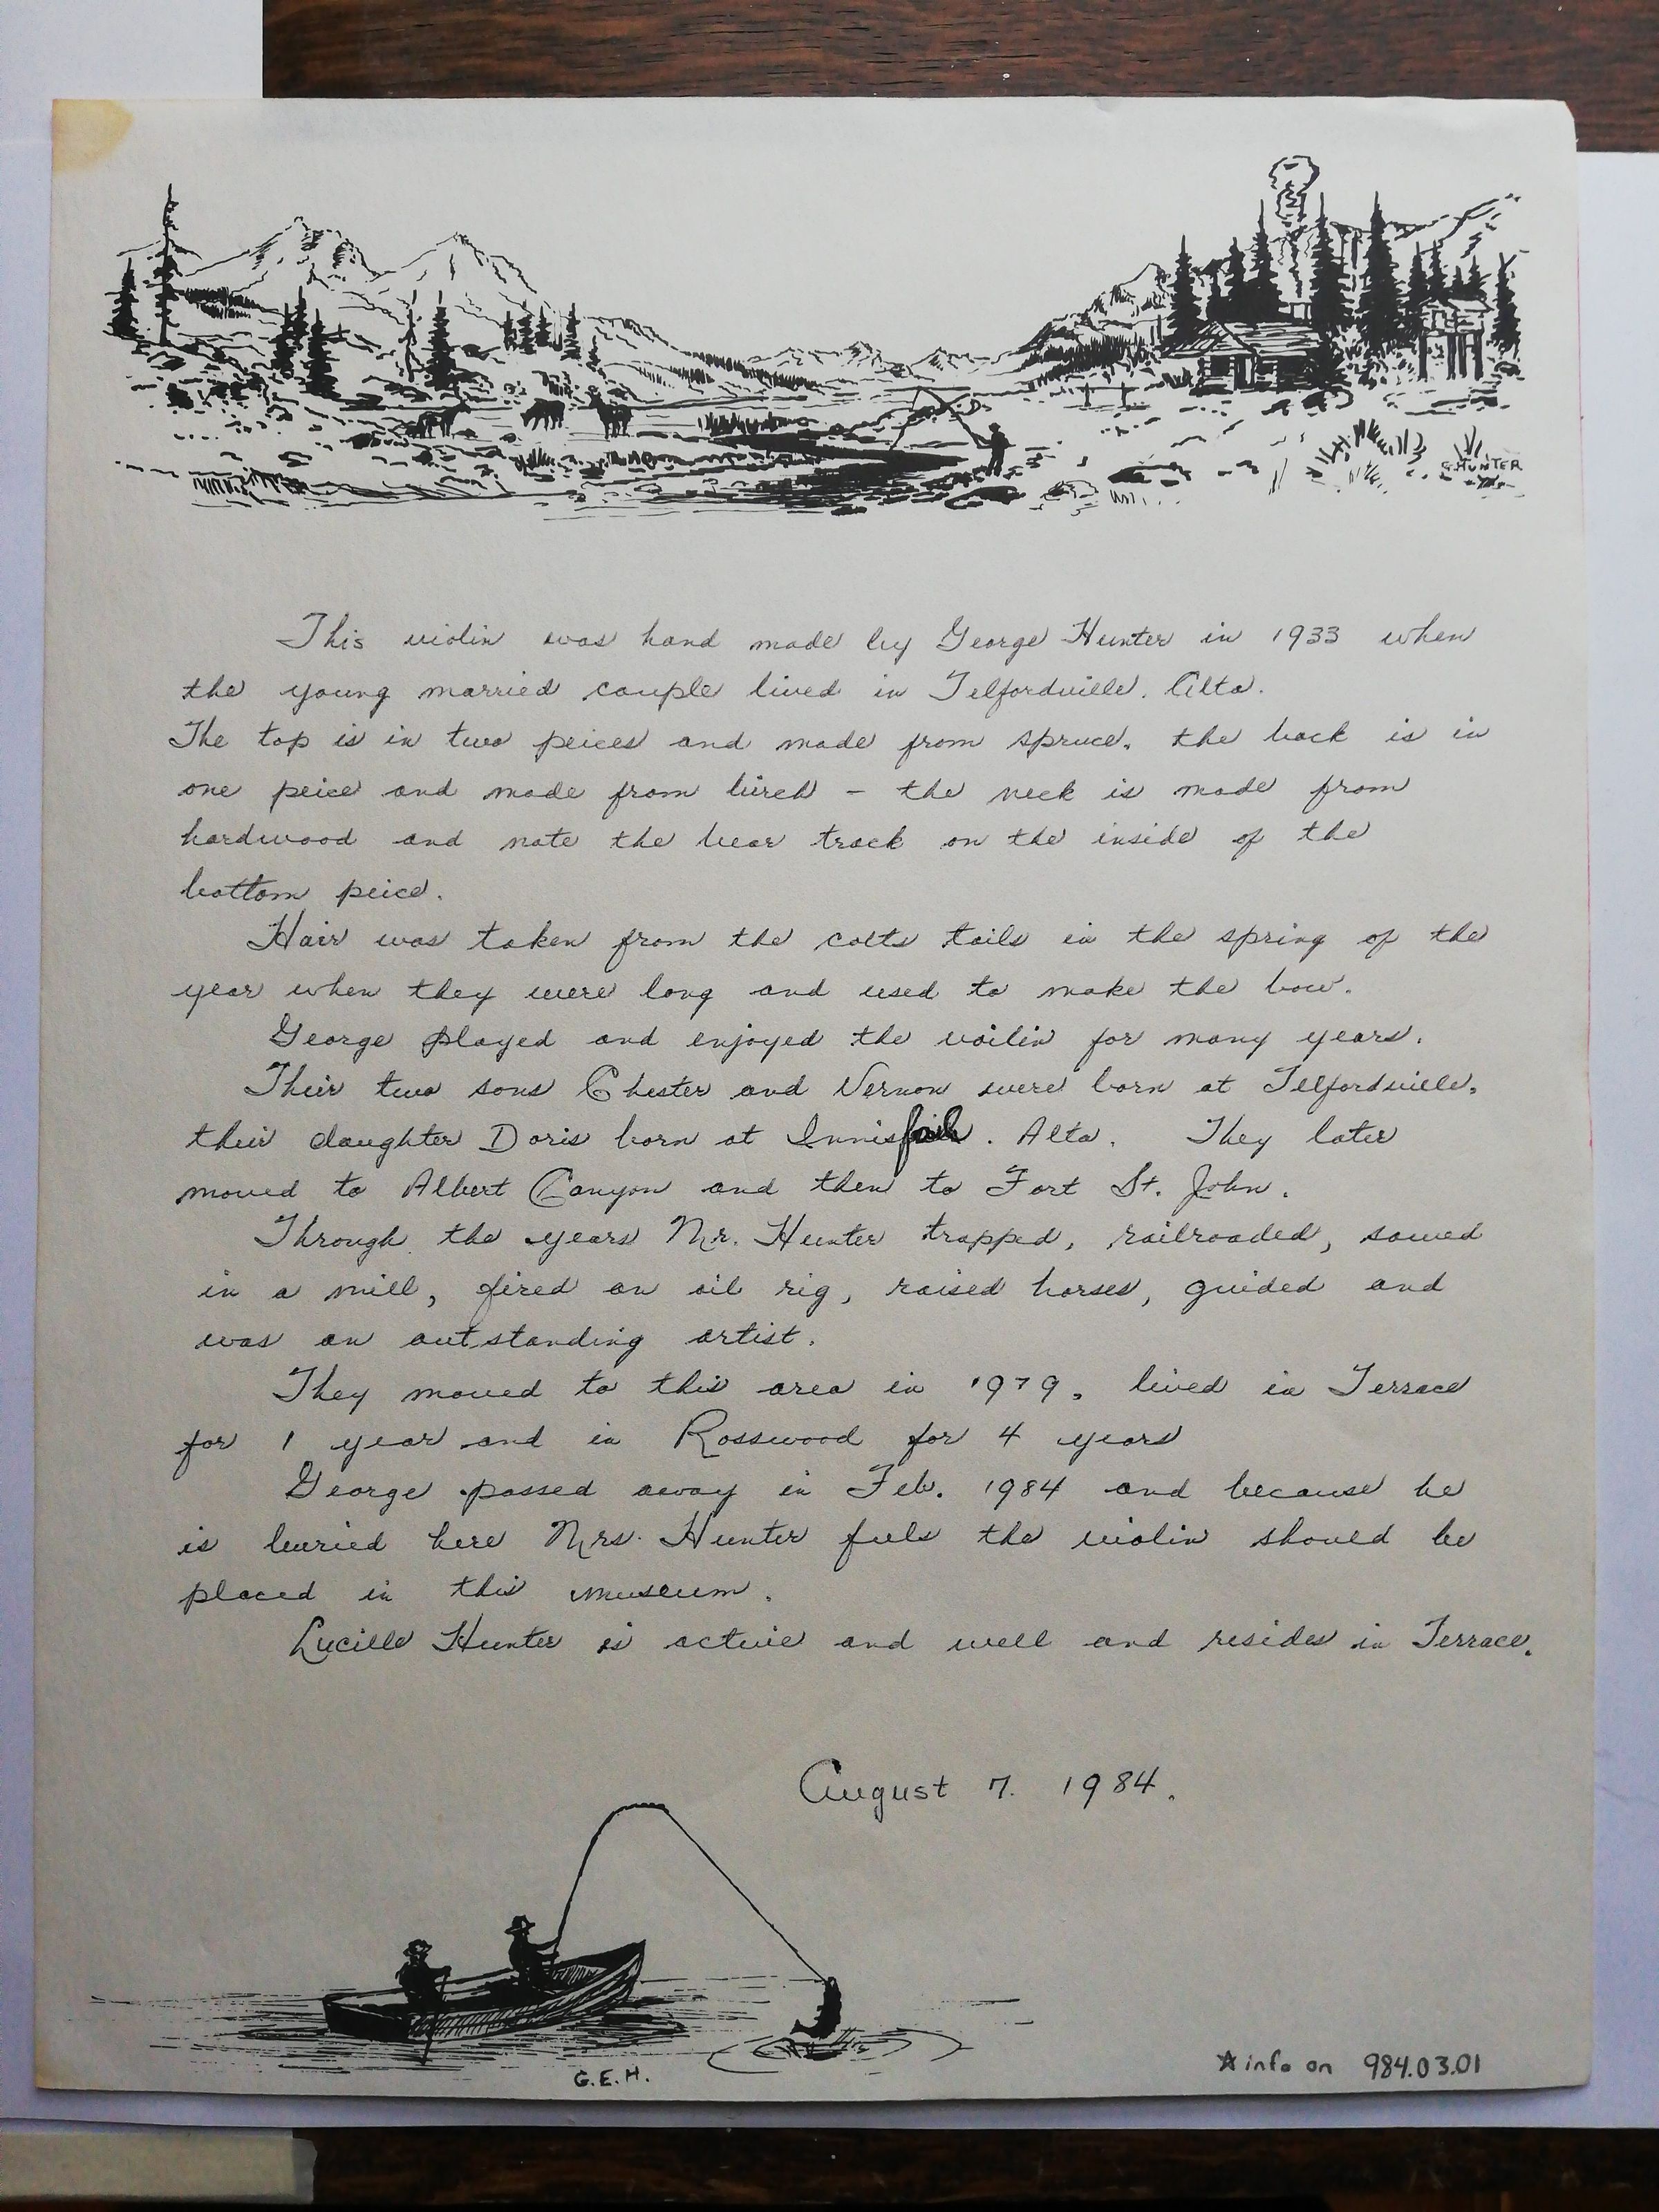 G. HUNTER
This violin was hand made by George Hunter in 1933 when
the young married couple lived in Telfordville. Alta.
The top is in two peices and made from spruce. the back is in
one peice and made from birch – the neck is made from
hardwood and note the bear track on the inside of the
bottom peice.
Hair was taken from the colts tails in the spring of the
year when they were long and used to make the bow.
George played and enjoyed the voilin for many years.
Their two sons Chester and Vernon were born at Telfordville,
their daughter Doris born at Innisfail. Alta. They later
moved to Albert Canyon and then to Fort St. John.
Through the years Mr. Hunter trapped, railroaded, sawed
in a mill, fired an oil rig, raised horses, guided and
was an outstanding artist.
They moved to this area in 1979. lived in Terrace
for 1 year and in Rosswood for 4 years
George passed away in Feb. 1984 and because he
is buried here Mrs. Hunter feels the violin should be
placed in this museum.
Lucille Hunter is active and well and resides in Terrace.
August 7. 1984.
G.E.H.
☆ info on 984.03.01